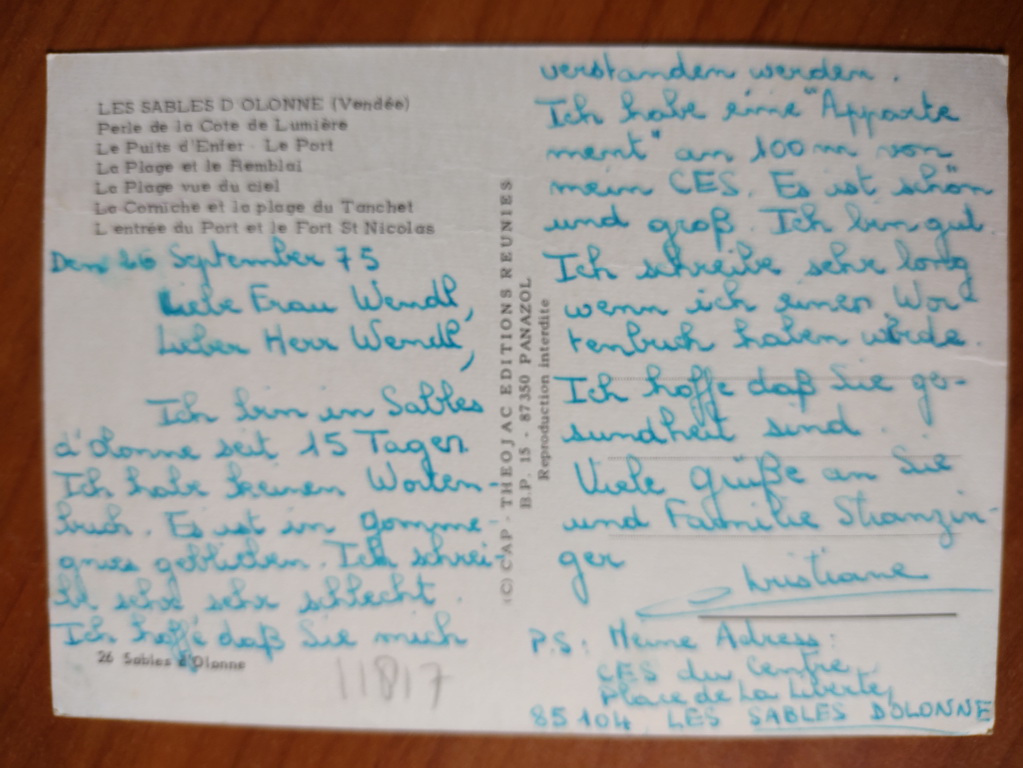 LES SABLES D'OLONNE (Vendée)
Perle de la Cote de Lumière
Le Puits d'Enfer - Le Port
La Plage et le Remblai
La Plage vue du ciel
La Corniche et la plage du Tanchet
L'entrée du Port et le Fort St Nicolas
Den 26 September 75
Liebe Frau Wendl,
Lieber Herr Wendl,
Ich bin in Sables
d'Olonne seit 15 Tagen
Ich habe keinen Worten-
buch. Es ist in Gomme-
gnies geblieben. Ich schrei
be sehr sehr schlecht.
Ich hoffe daß Sie mich
26 Sables d'Olonne
11817
(C) CAP - THEOJAC EDITIONS REUNIES
B.P. 15 - 87350 PANAZOL
Reproduction interdite
verstanden werden.
Ich habe eine "Apparte
ment" an 100 m von
mein CES. Es ist schön
und groß. Ich bin gut.
Ich schreibe sehr long
wenn ich einen Wor-
tenbuch haben würde.
Ich hoffe daß Sie ge-
sundheit sind.
Viele Grüße an Sie
und Familie Stranzin-
ger
Christiane
P.S: Meine Adress:
CES du Centre,
Place de La Liberté,
85104 LES SABLES D'OLONNE